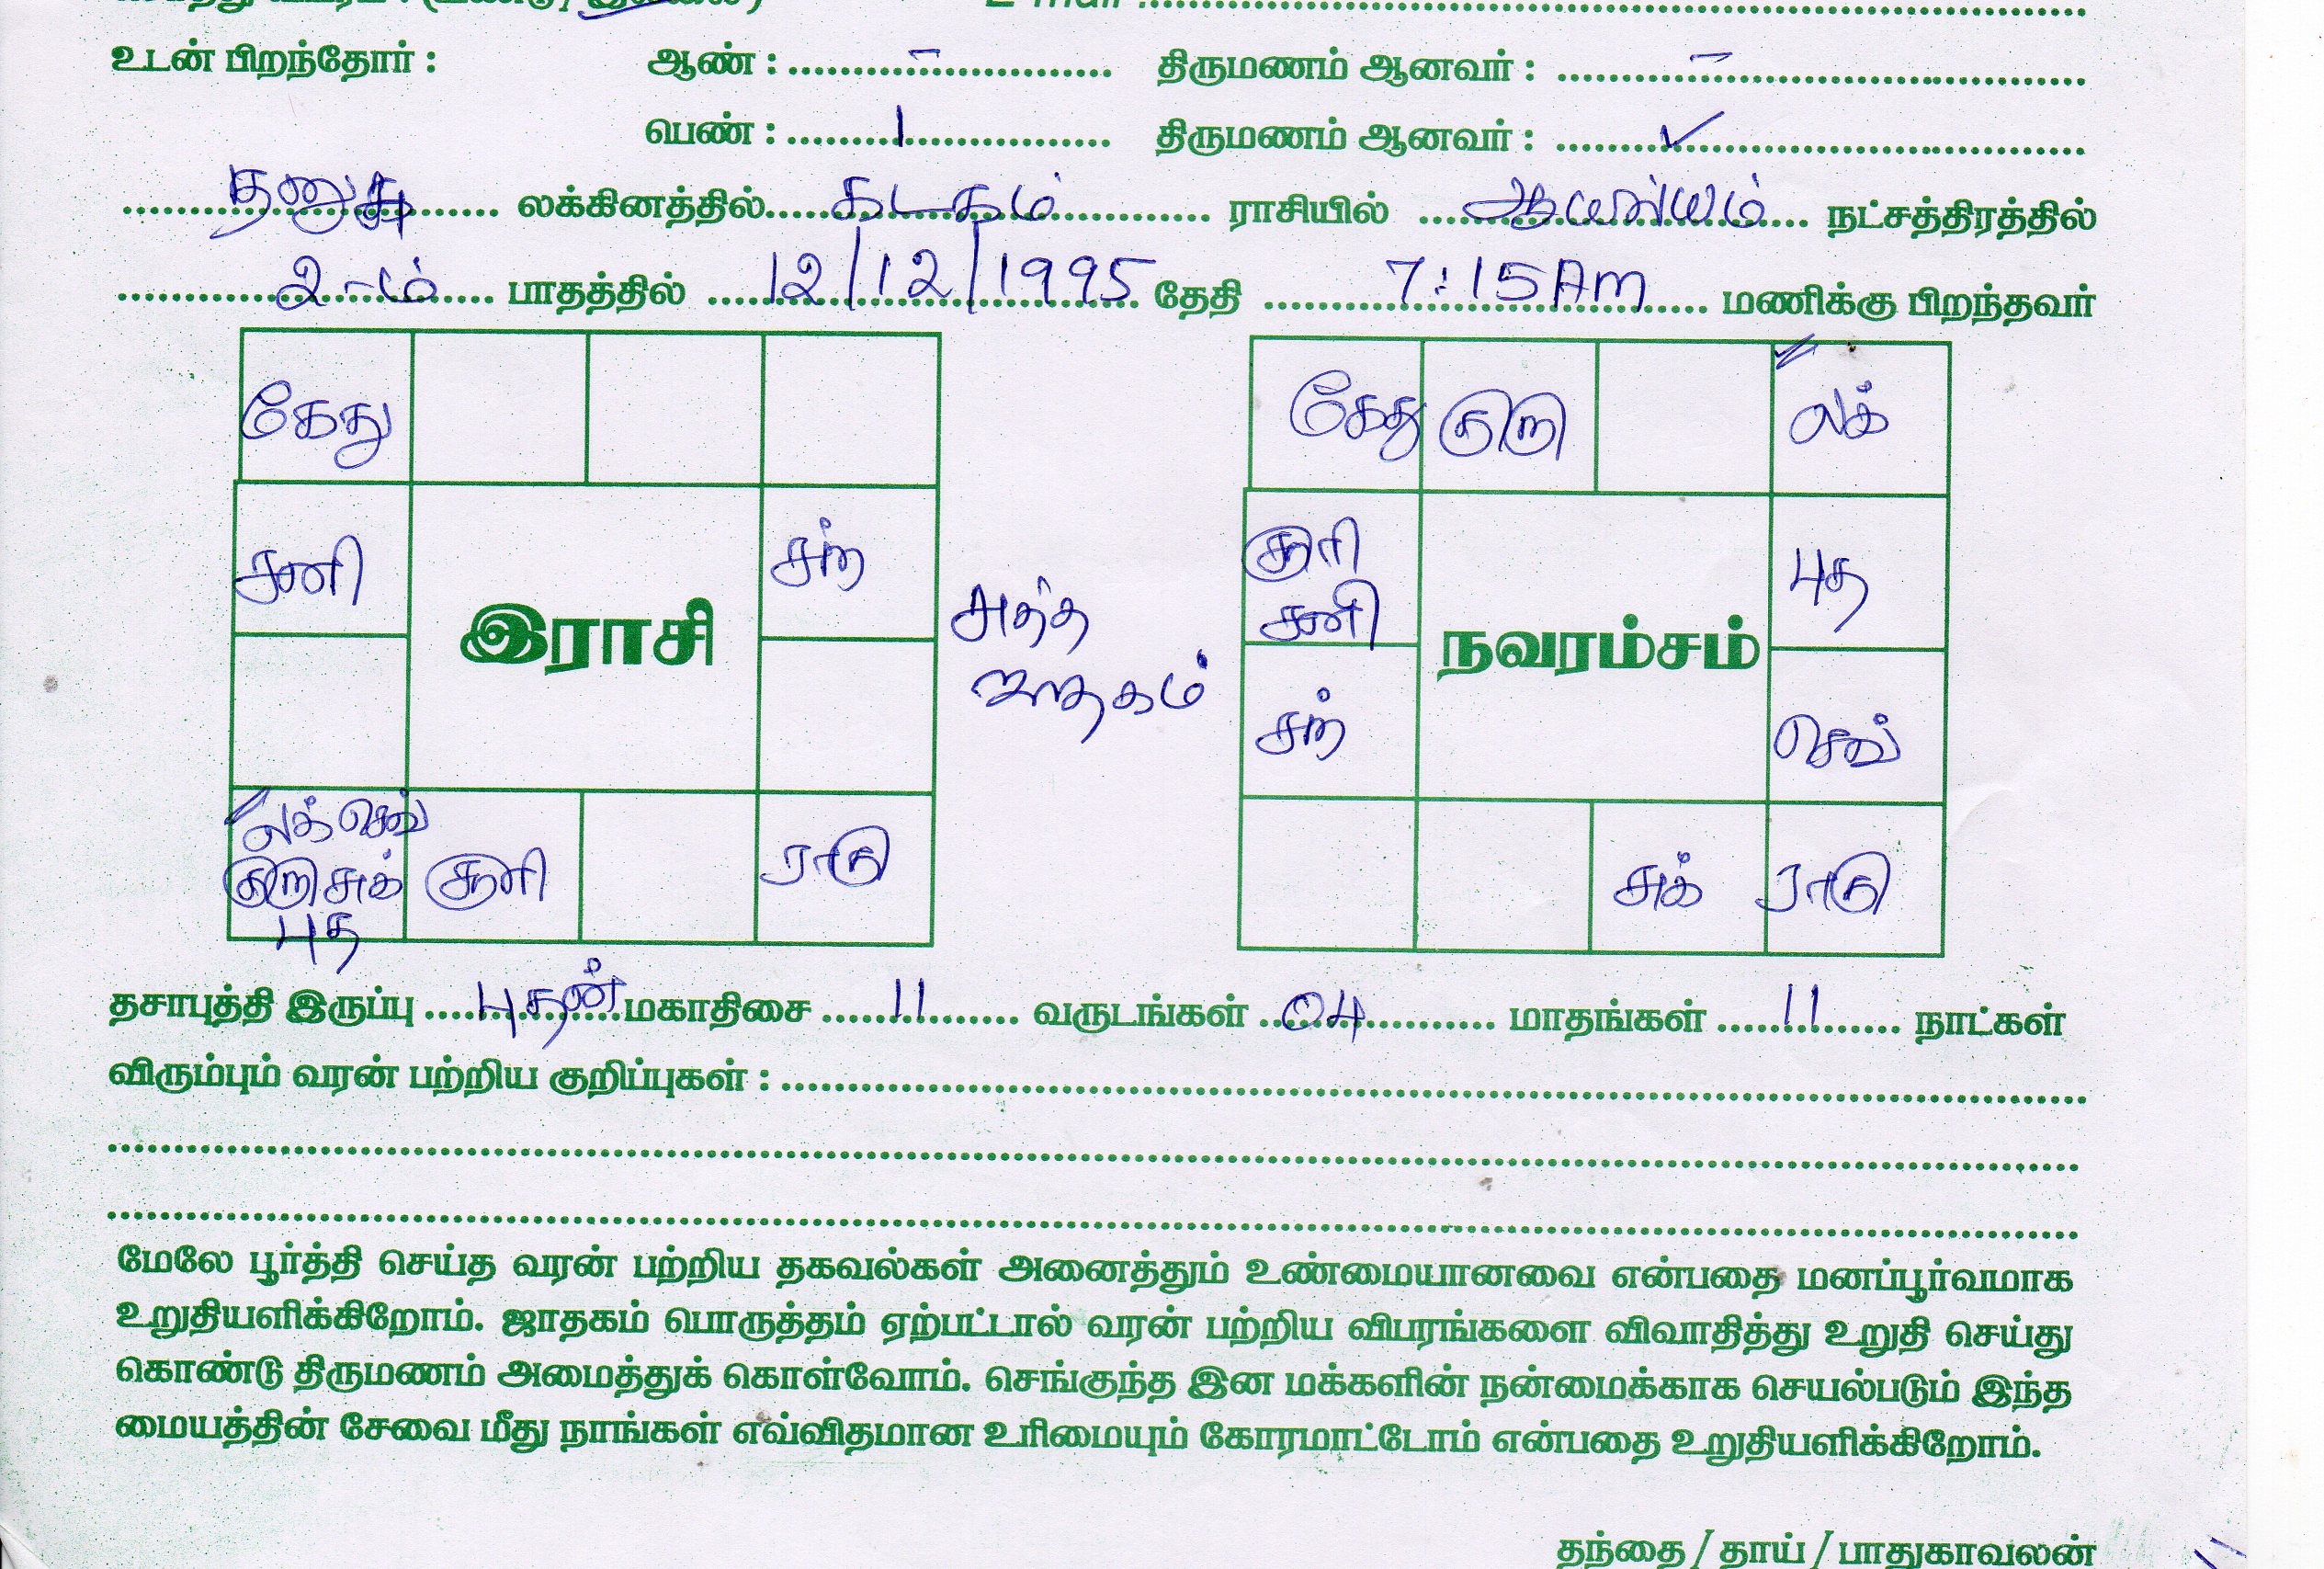 E-mail :
உடன் பிறந்தோர் : ஆண் : – திருமணம் ஆனவர் : –
பெண் : 1 திருமணம் ஆனவர் : ✓
தனுசு லக்கினத்தில் கடகம் ராசியில் ஆயில்யம் நட்சத்திரத்தில்
2-ம் பாதத்தில் 12/12/1995 தேதி 7:15 Am மணிக்கு பிறந்தவர்
கேது
சனி
சந்
இராசி
லக் செவ்
குரு சுக்
புத
சூரி
ராகு
சுத்த
ஜாதகம்
கேது குரு லக்
சூரி
சனி
புத
நவரம்சம்
சந்
செவ்
சுக் ராகு
தசாபுத்தி இருப்பு புதன் மகாதிசை 11 வருடங்கள் 04 மாதங்கள் 11 நாட்கள்
விரும்பும் வரன் பற்றிய குறிப்புகள் :
மேலே பூர்த்தி செய்த வரன் பற்றிய தகவல்கள் அனைத்தும் உண்மையானவை என்பதை மனப்பூர்வமாக
உறுதியளிக்கிறோம். ஜாதகம் பொருத்தம் ஏற்பட்டால் வரன் பற்றிய விபரங்களை விவாதித்து உறுதி செய்து
கொண்டு திருமணம் அமைத்துக் கொள்வோம். செங்குந்த இன மக்களின் நன்மைக்காக செயல்படும் இந்த
மையத்தின் சேவை மீது நாங்கள் எவ்விதமான உரிமையும் கோரமாட்டோம் என்பதை உறுதியளிக்கிறோம்.
தந்தை / தாய் / பாதுகாவலன்